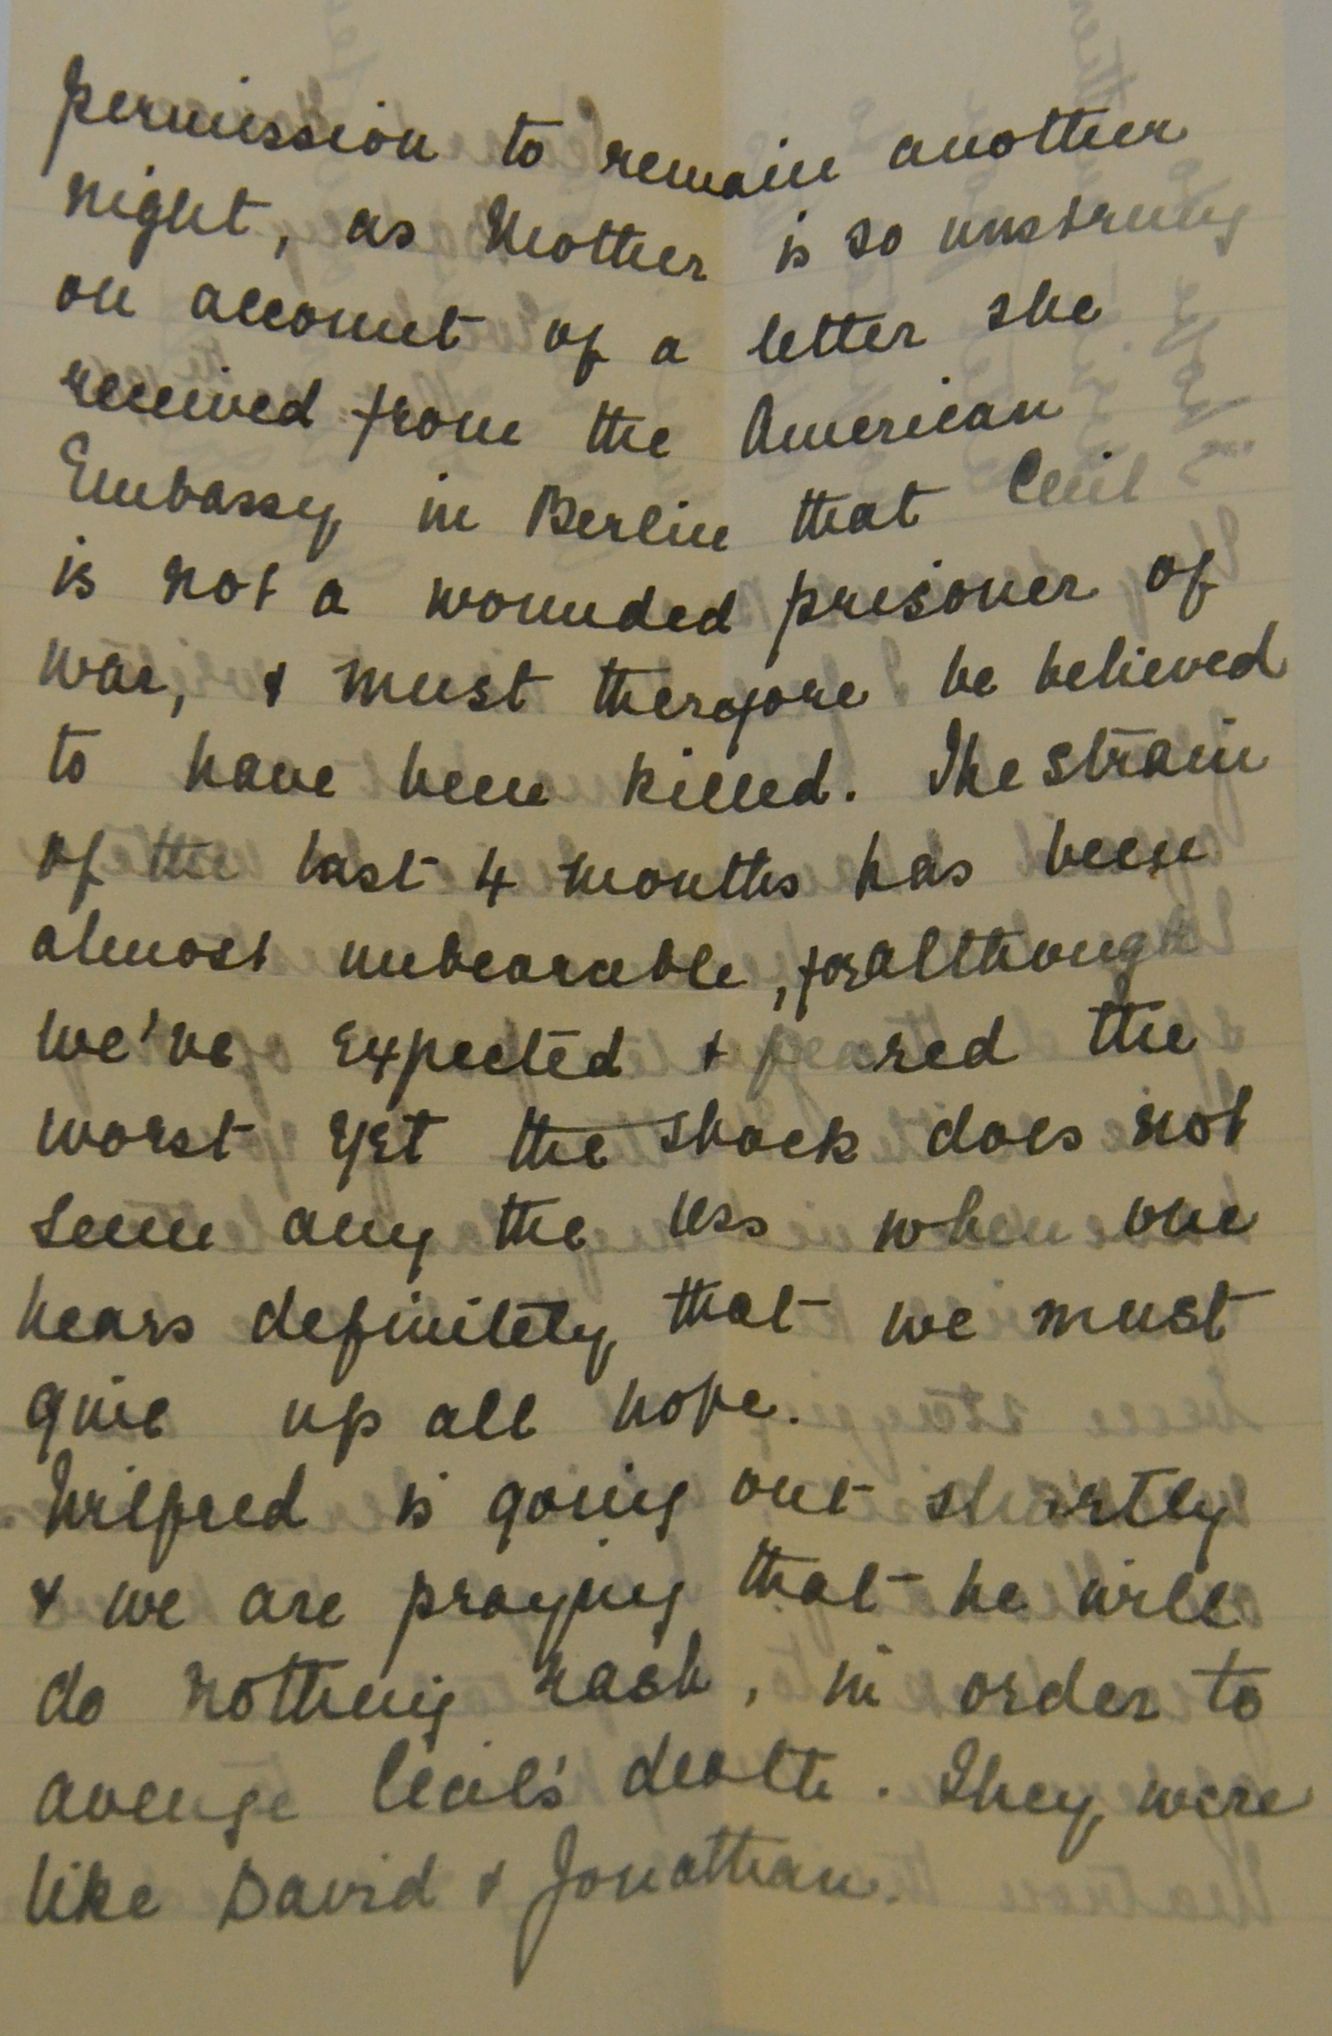 permission to remain another
night, as Mother is so unstrung
on account of a letter she
received from the American
Embassy in Berlin that Cecil
is not a wounded prisoner of
war, & must therefore be believed
to have been killed. The strain
of the last 4 months has been
almost unbearable, for although
we've expected & feared the
worst yet the shock does not
seem any the less when one
hears definitely that we must
give up all hope.
Wilfred is going out shortly
& we are praying that he will
do nothing rash, in order to
avenge Cecil's death. They were
like David & Jonathan.